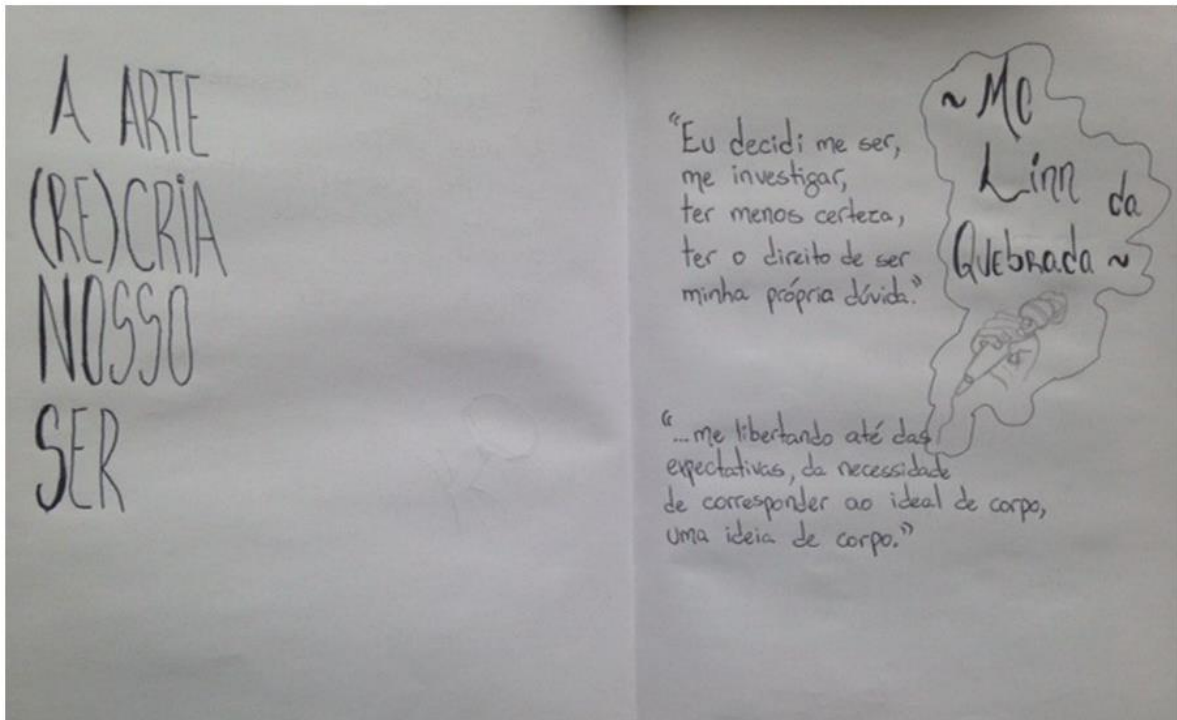 A ARTE
(RE)CRIA
NOSSO
SER
~ Mc
Linn da
Quebrada ~
"Eu decidi me ser,
me investigar,
ter menos certeza,
ter o direito de ser
minha própria dúvida."
"...me libertando até das
expectativas, da necessidade
de corresponder ao ideal de corpo,
uma ideia de corpo."